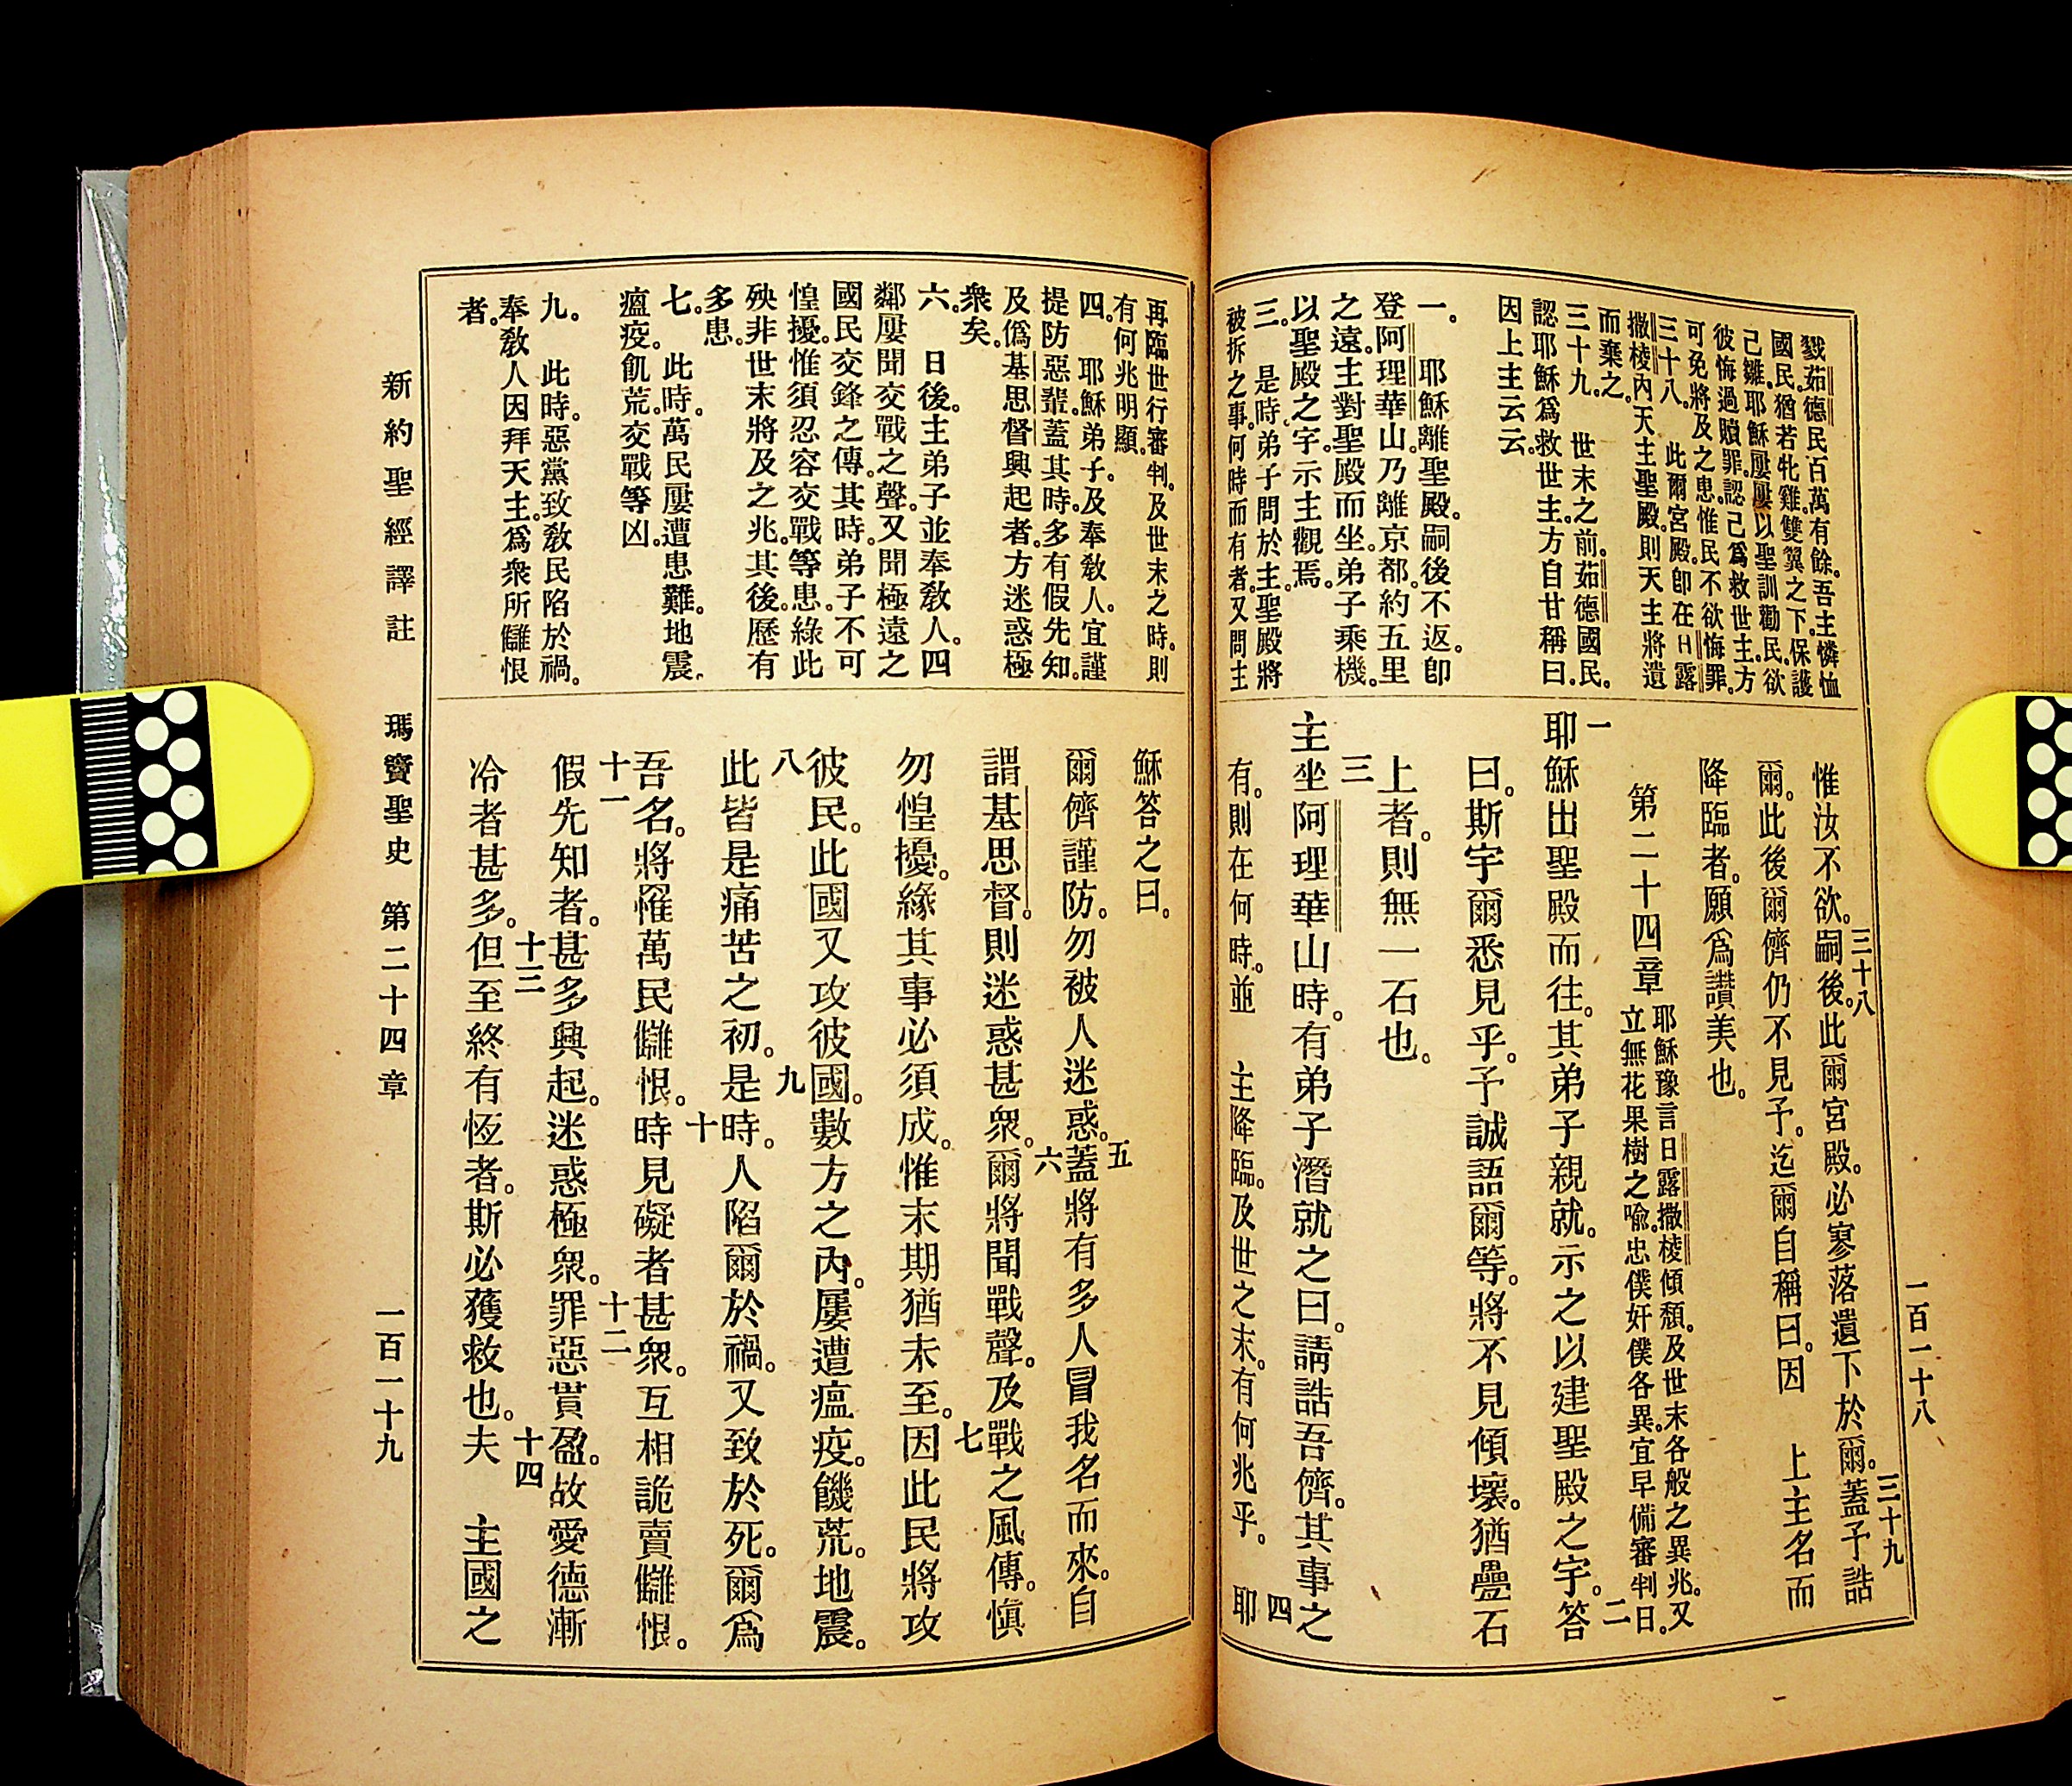 戮茹德民百萬有餘。吾主憐恤
國民。猶若牝雞。雙翼之下。保護
己雛。耶穌屢屢以聖訓勸民。欲
彼悔過贖罪。認己爲救世主。方
可免將及之患。惟民不欲悔罪。
三十八。 此爾宮殿。卽在日露
撒棱內天主聖殿。則天主將遺
而棄之。
三十九。 世末之前。茹德國民。
認耶穌爲救世主。方自甘稱曰。
因上主云云。
一。 耶穌離聖殿。嗣後不返。卽
登阿理華山。乃離京都。約五里
之遠。主對聖殿而坐。弟子乘機。
以聖殿之宇。示主觀焉。
三。 是時。弟子問於主。聖殿將
被拆之事。何時而有者。又問主
惟汝不欲。三十八嗣後。此爾宮殿。必寥落遺下於爾。三十九蓋予誥
爾。此後爾儕仍不見予。迄爾自稱曰。因 上主名而
降臨者。願爲讚美也。
第二十四章 耶穌豫言日露撒棱傾頽。及世末各般之異兆。又
立無花果樹之喩。忠僕奸僕各異。宜早備審判日。
一耶穌出聖殿而往。其弟子親就。示之以建聖殿之宇。二答
曰。斯宇爾悉見乎。予誠語爾等。將不見傾壞。猶疊石
上者。則無一石也。
三主坐阿理華山時。有弟子潛就之曰。請誥吾儕。其事之
有。則在何時。並 主降臨。及世之末。有何兆乎。 四耶
一百一十八
再臨世行審判。及世末之時。則
有何兆明顯。
四。 耶穌弟子。及奉教人。宜謹
提防惡輩。蓋其時。多有假先知。
及僞基思督興起者。方迷惑極
衆矣。
六。 日後。主弟子並奉教人。四
鄰屢聞交戰之聲。又聞極遠之
國民交鋒之傳。其時。弟子不可
惶擾。惟須忍容交戰等患。緣此
殃非世末將及之兆。其後。歷有
多患。
七。 此時。萬民屢遭患難。地震。
瘟疫。飢荒。交戰等凶。
九。 此時。惡黨致教民陷於禍。
奉教人因拜天主。爲衆所讎恨
者。
穌答之曰。
爾儕謹防。勿被人迷惑。五蓋將有多人冒我名而來。自
謂基思督。則迷惑甚衆。六爾將聞戰聲。及戰之風傳。愼
勿惶擾。緣其事必須成。惟末期猶未至。七因此民將攻
彼民。此國又攻彼國。數方之內。屢遭瘟疫。饑荒。地震。
八此皆是痛苦之初。九是時。人陷爾於禍。又致於死。爾爲
吾名。將罹萬民讎恨。十時見礙者甚衆。互相詭賣讎恨。
十一假先知者。甚多興起。迷惑極衆。十二罪惡貫盈。故愛德漸
冷者甚多。十三但至終有恆者。斯必獲救也。十四夫 主國之
新約聖經譯註 瑪竇聖史 第二十四章 一百一十九